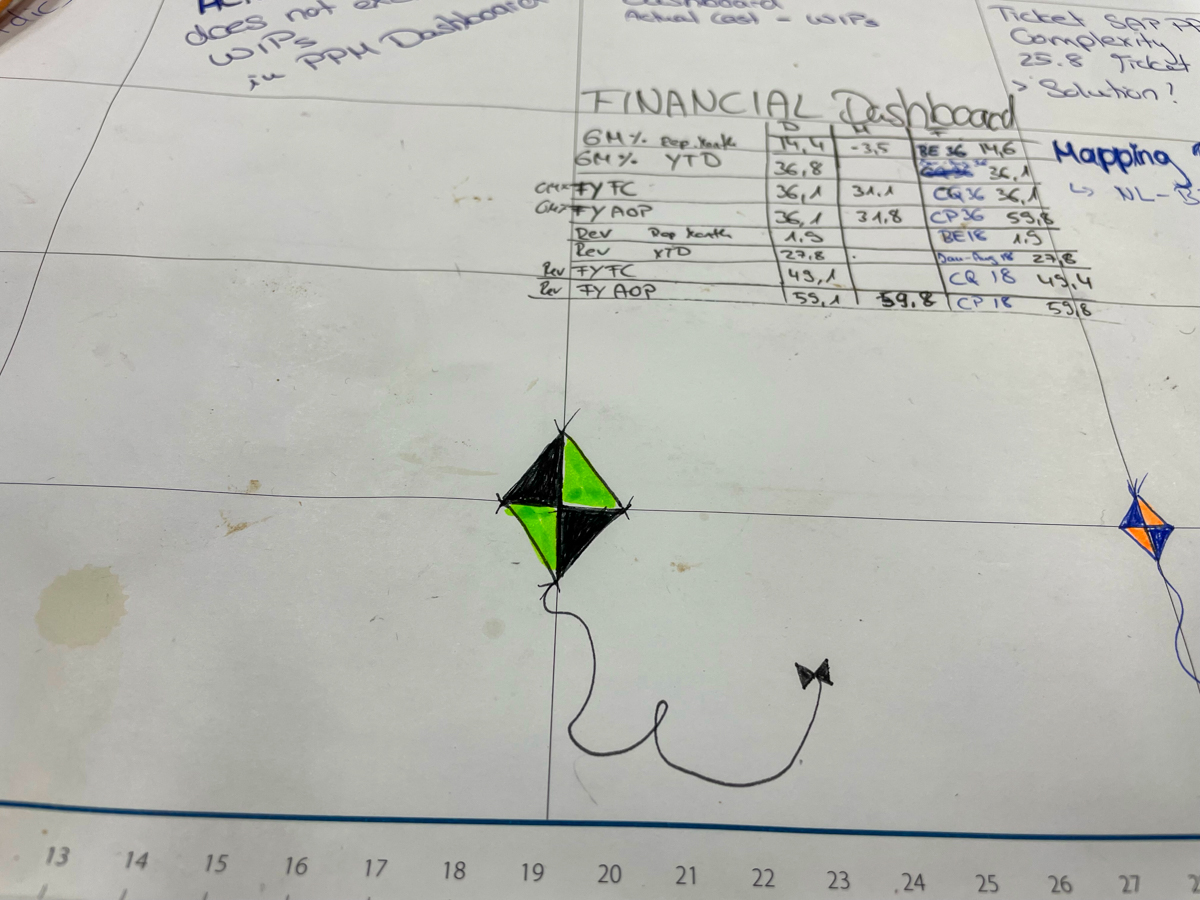 does not
WIPs
in PPM Dashboard
Dashboard
Actual Cost - WIPs
Ticket SAP
Complexity
25.8 Ticket
> Solution?
FINANCIAL Dashboard
D M F
GM% Rep. Month 14,4 -3,5 BE 36 14,6
GM% YTD 36,8 36,1
GM% FY FC 36,1 31.1 CQ36 36,1
GM% FY AOP 36,1 31,8 CP36 59,8
Rev Rep Month 1.9 BE18 1.9
Rev YTD 27,8 Jan-Aug 18 27,8
Rev FY FC 49,1 CQ 18 49,4
Rev FY AOP 59,1 59,8 CP 18 59,8
Mapping
↳ NL-B
13 14 15 16 17 18 19 20 21 22 23 24 25 26 27